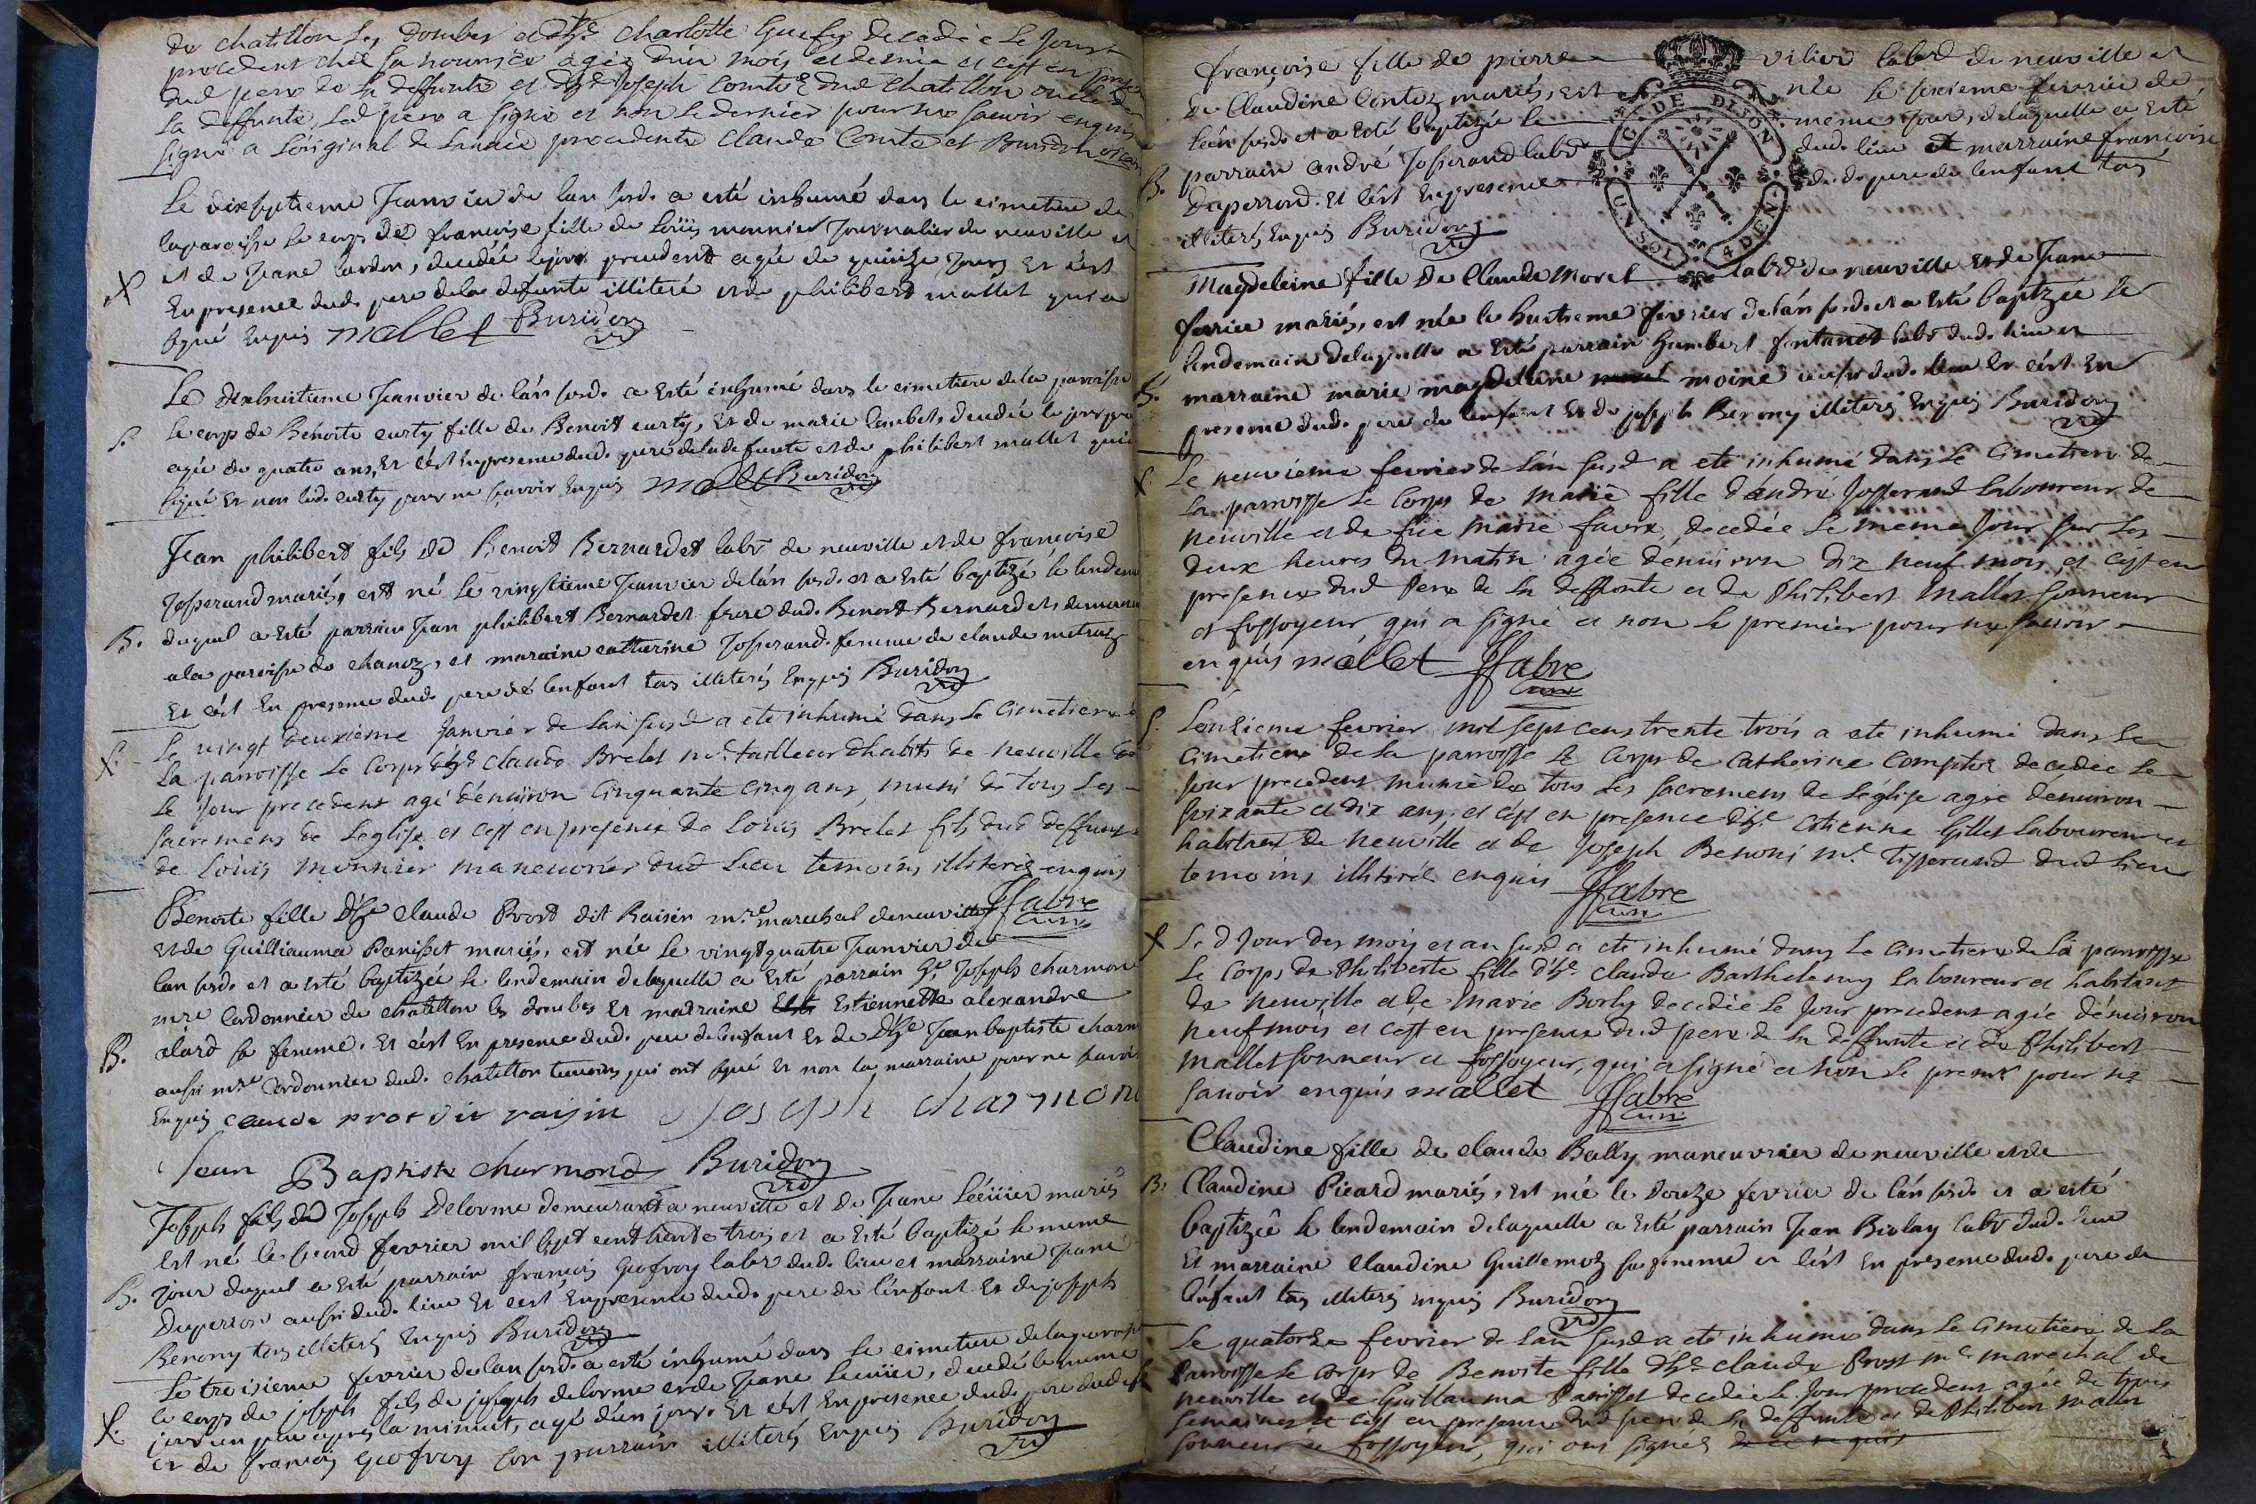 de chatillon les dombes et d'hte charlotte decedée le jour
precedent chés sa nourisse agée d'un mois et demie et c'est en presence
dud pere de la deffunte et d'hte Joseph comte dud chatillon oncle de
la deffunte, led pere a signé et non le dernier pour ne sçavoir enquis
signé a l'original de l'année precedente claude Comte et Buridon vicaire
Le dixseptieme Janvier de lan susd. a esté inhumé dans le cimetiere de
la paroisse le corps de françoise fille de Loüis monnier Journalier de neuville et
et de Jeane lardon, decedée le jour precedent agée de quinze jours Et c'est
En presence dud. pere de la defunte illiteré et de philibert mallet qui a
signé Enquis mallet Buridon
vic
Le dixhuitieme Janvier de lán susd. a esté inhumé dans le cimetiere de la paroisse
le corps de Benoite curty fille de Benoit curty, Et de marie lambet, decedée le jour pre
agée de quatre ans, Et c'est En presence dud. pere de la defunte et de philibert mallet qui a
signé Et non led. curty pour ne sçavoir Enquis mallet Buridon
vic
Jean philibert fils de Benoit Bernardet labr de neuville et de françoise
Josserand mariés, est né Le vingtieme Janvier de lán susd. et a Esté baptizé le lendem
B. duquel a Esté parrain Jean philibert Bernardet frere dud. Benoit Bernardet, demeurant
a la paroisse de chanoz, et maraine catterine Josserand femme de claude metraz
Et c'est En presence dud. pere de lenfant tous illiterés Enquis Buridon
vic
Le vingt deuxième Janvier de lan susd a ete inhumé dans le Cimetiere de
La parroisse Le Corps d'hte claude Brelet me tailleur dhabits de neuville
Le Jour precedent agé d'énuiron Cinquante Cinq ans, muni de tous Les
Sacremens de Leglise et c'est en presence de Louis Brelet fils dud deffunt
de Loüis monnier maneuvrier dud Lieu temoins illiterés enquis
ffabre
curé
Benoite fille d'hte claude Prost dit Raisin mre marechal de neuville
et de Guilliauma Panisset mariés, est née Le vingtquatre Janvier de
lan susd. et a esté baptizée le lendemain de laquelle a Esté parrain hte Joseph charmond
mre Cordonnier de chatillon les dombes Et marraine Estiennette alexandre
B. alard sa femme. Et c'est En presence dud. pere de lenfant Et de d'hte Jean baptiste charm
aussi mre Cordonnier dud. chatillon temoins qui ont signé Et non la marraine pour ne sçavoir
Enquis claude prot dit raisin Joseph charmond
Jean Baptiste charmond Buridon
vic
Joseph fils de Joseph Delorme demeurant a neuville et de Jeane Léviier mariés
Est né le second fevrier mil sept cent trente trois et a Esté baptizé le meme
B. Jour duquel a Esté parrain françois Geofroy labr dud. lieu et marraine Jeane
Duperron aussi dud. lieu Et c'est En presence dud. pere de lénfant Et de joseph
Berony tous illiterés Enquis Buridon
vic
Le troisieme fevrier de lan susd. a esté inhumé dans le cimetiere de la paroisse
le corps de joseph fils de joseph delorme et de Jeane Leviier, decedé le meme
jour un peu apres la minuit, agé d'un jour. Et c'est En presence dud. pere dud def
et de françois Geofroy son parrain illiterés Enquis Buridon
vic
françoise fille de pierre vilier labr de neuville et
de Claudine Contez mariés, est née Le sixieme fevrier de
lán susd. et a Esté baptizée le meme jour, de laquelle a Esté
B. parrain andré Josserand labr dud. lieu et marraine françoise
Duperron. Et c'est En presence dud. pere de lenfant tous
illiterés Enquis Buridon
vic
G. DE DIJON
4 DEN.
Magdeleine fille de Claude Morel labr de neuville et de Jeane
ferrier mariés, est née le huitieme fevrier de lán susd. et a Esté baptizée le
lendemain de laquelle a Esté parrain humbert fontanet labr dud. lieu et
B. marraine marie magdeleine moine aussi dud. lieu Et c'est En
presence dud. pere de lenfant Et de joseph Berony illiterés Enquis Buridon
vic
Le neuvieme fevrier de lán susd a eté inhumé dans Le Cimetiere de
La parroisse Le Corps de marie fille d'ándré Josserand Laboureur de
neuville et de füe marie favre, decedée Le meme Jour sur Les
deux heures du matin agée d'enuiron dix neuf mois, et c'est en
presence dud Pere de La deffunte et de Philibert Mallet sonneur
et fossoyeur qui a signé et non Le premier pour ne sçavoir
enquis mallet ffabre
curé
L'onzieme fevrier mil sept cens trente trois a eté inhumé dans Le
Cimetiere de La parroisse Le Corps de Catherine Compter decedée Le
Jour precedent munie de tous Les sacremens de Léglise agée d'enuiron
soixante et dix ans, et c'est en presence d'hte etienne Gillet Laboureur et
habitant de neuville et de Joseph Beroni me Tisserand dud Lieu
temoins illiterés enquis ffabre
curé
Le d Jour des mois et an susd a eté inhumé dans Le Cimetiere de La parroisse
Le Corps de Philiberte fille d'hte claude Barthelemy Laboureur et habitant
de neuville et de Marie Borly decedée Le Jour precedent agée d'enuiron
neuf mois et c'est en presence dud pere de La deffunte et de Philibert
Mallet sonneur et fossoyeur, qui a signé et non Le premr pour ne
sçavoir enquis mallet ffabre
curé
Claudine fille de claude Bally maneuvrier de neuville et de
B. Claudine Picard mariés, Est née le Douze fevrier de lán susd. et a esté
baptizée le lendemain de laquelle a Esté parrain Jean Biolay labr dud. lieu
Et marraine Claudine Guillemoz sa femme et c'est En presence dud. pere de
lénfant tous illiterés Enquis Buridon
vic
Le quatorze fevrier de Lan susd a eté inhumé dans Le Cimetiere de La
Parroisse Le corps de Benoite fille d'hte claude Prost me marechal de
neuville et de Guillauma Panisset decedée Le Jour precedent agée de trois
semaines et c'est en presence dud pere de La deffunte et de Philibert Mallet
sonneur et fossoyeur, qui ont signés